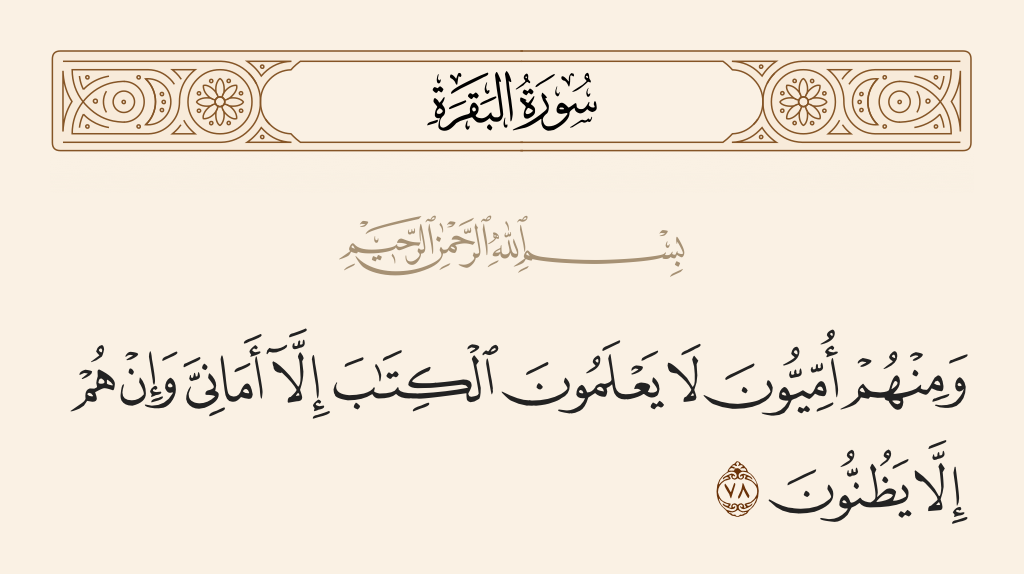 سُورَةُ البَقَرَةِ
بِسْمِ ٱللَّهِ ٱلرَّحْمَٰنِ ٱلرَّحِيمِ
وَمِنْهُمْ أُمِّيُّونَ لَا يَعْلَمُونَ ٱلْكِتَٰبَ إِلَّآ أَمَانِىَّ وَإِنْ هُمْ
إِلَّا يَظُنُّونَ ٧٨